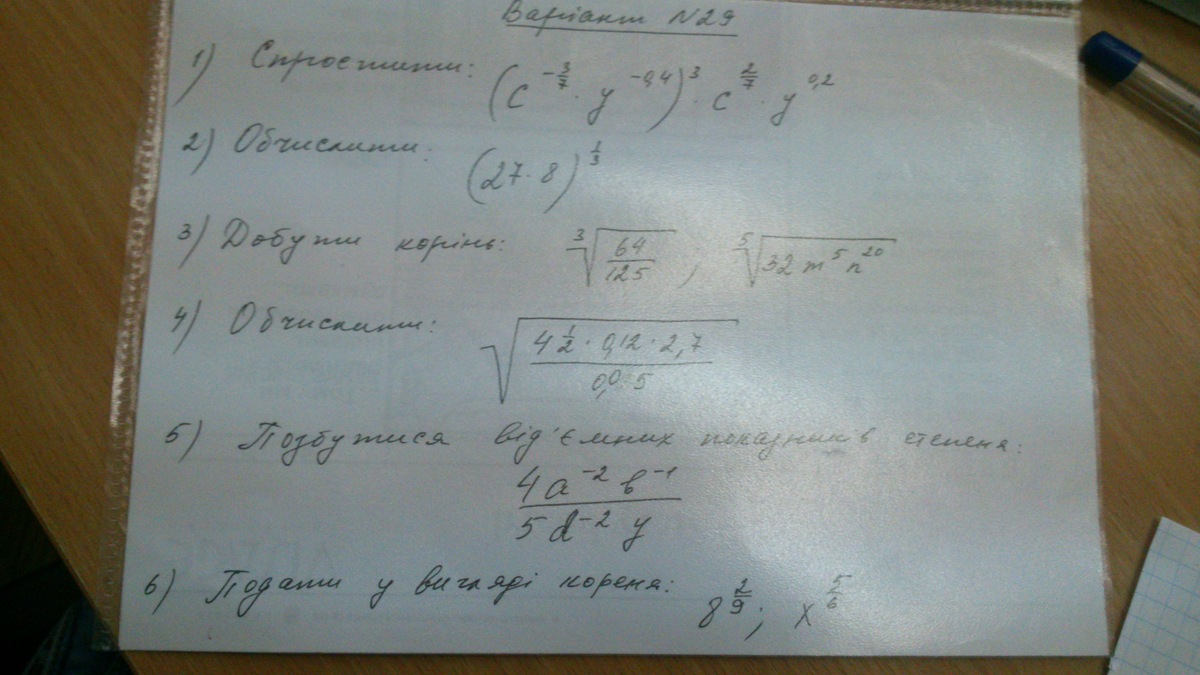 Варіант №29
1) Спростити: (c^{-3/7} · y^{-0,4})^3 · c^{2/7} · y^{0,2}
2) Обчислити: (27 · 8)^{1/3}
3) Добути корінь: ∛(64/125), ⁵√(32 m^5 n^{20})
4) Обчислити: √((4 1/2 · 0,12 · 2,7)/(0,05))
5) Позбутися від'ємних показників степеня:
(4a^{-2} b^{-1})/(5d^{-2} y)
6) Подати у вигляді кореня: 8^{2/9}; x^{5/6}